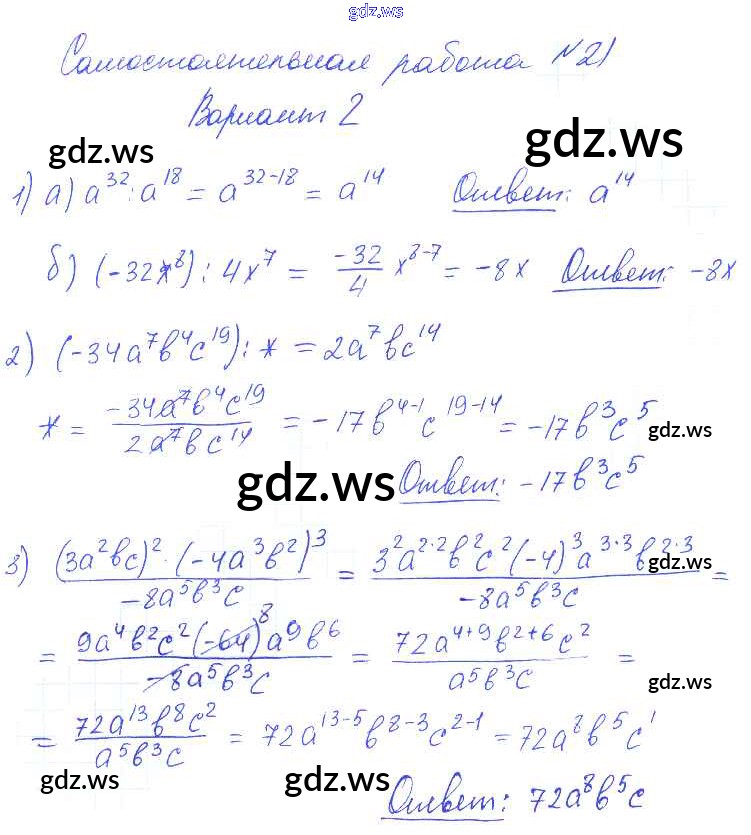 gdz.ws
Самостоятельная работа №21
Вариант 2
gdz.ws gdz.ws
1) а) a³²:a¹⁸ = a³²⁻¹⁸ = a¹⁴ Ответ: a¹⁴
б) (-32x⁸) : 4x⁷ = -32/4 x⁸⁻⁷ = -8x Ответ: -8x
2) (-34a⁷b⁴c¹⁹) : * = 2a⁷bc¹⁴
* = -34a⁷b⁴c¹⁹ / 2a⁷bc¹⁴ = -17b⁴⁻¹c¹⁹⁻¹⁴ = -17b³c⁵
gdz.ws
gdz.ws
Ответ: -17b³c⁵
3) (3a²bc)² · (-4a³b²)³ / -8a⁵b³c = 3²a²·²b²c²(-4)³a³·³b²·³ / -8a⁵b³c =
gdz.ws
= 9a⁴b²c²(-64)⁸a⁹b⁶ / -8a⁵b³c = 72a⁴⁺⁹b²⁺⁶c² / a⁵b³c =
gdz.ws
= 72a¹³b⁸c² / a⁵b³c = 72a¹³⁻⁵b⁸⁻³c²⁻¹ = 72a⁸b⁵c¹
gdz.ws gdz.ws gdz.ws
Ответ: 72a⁸b⁵c